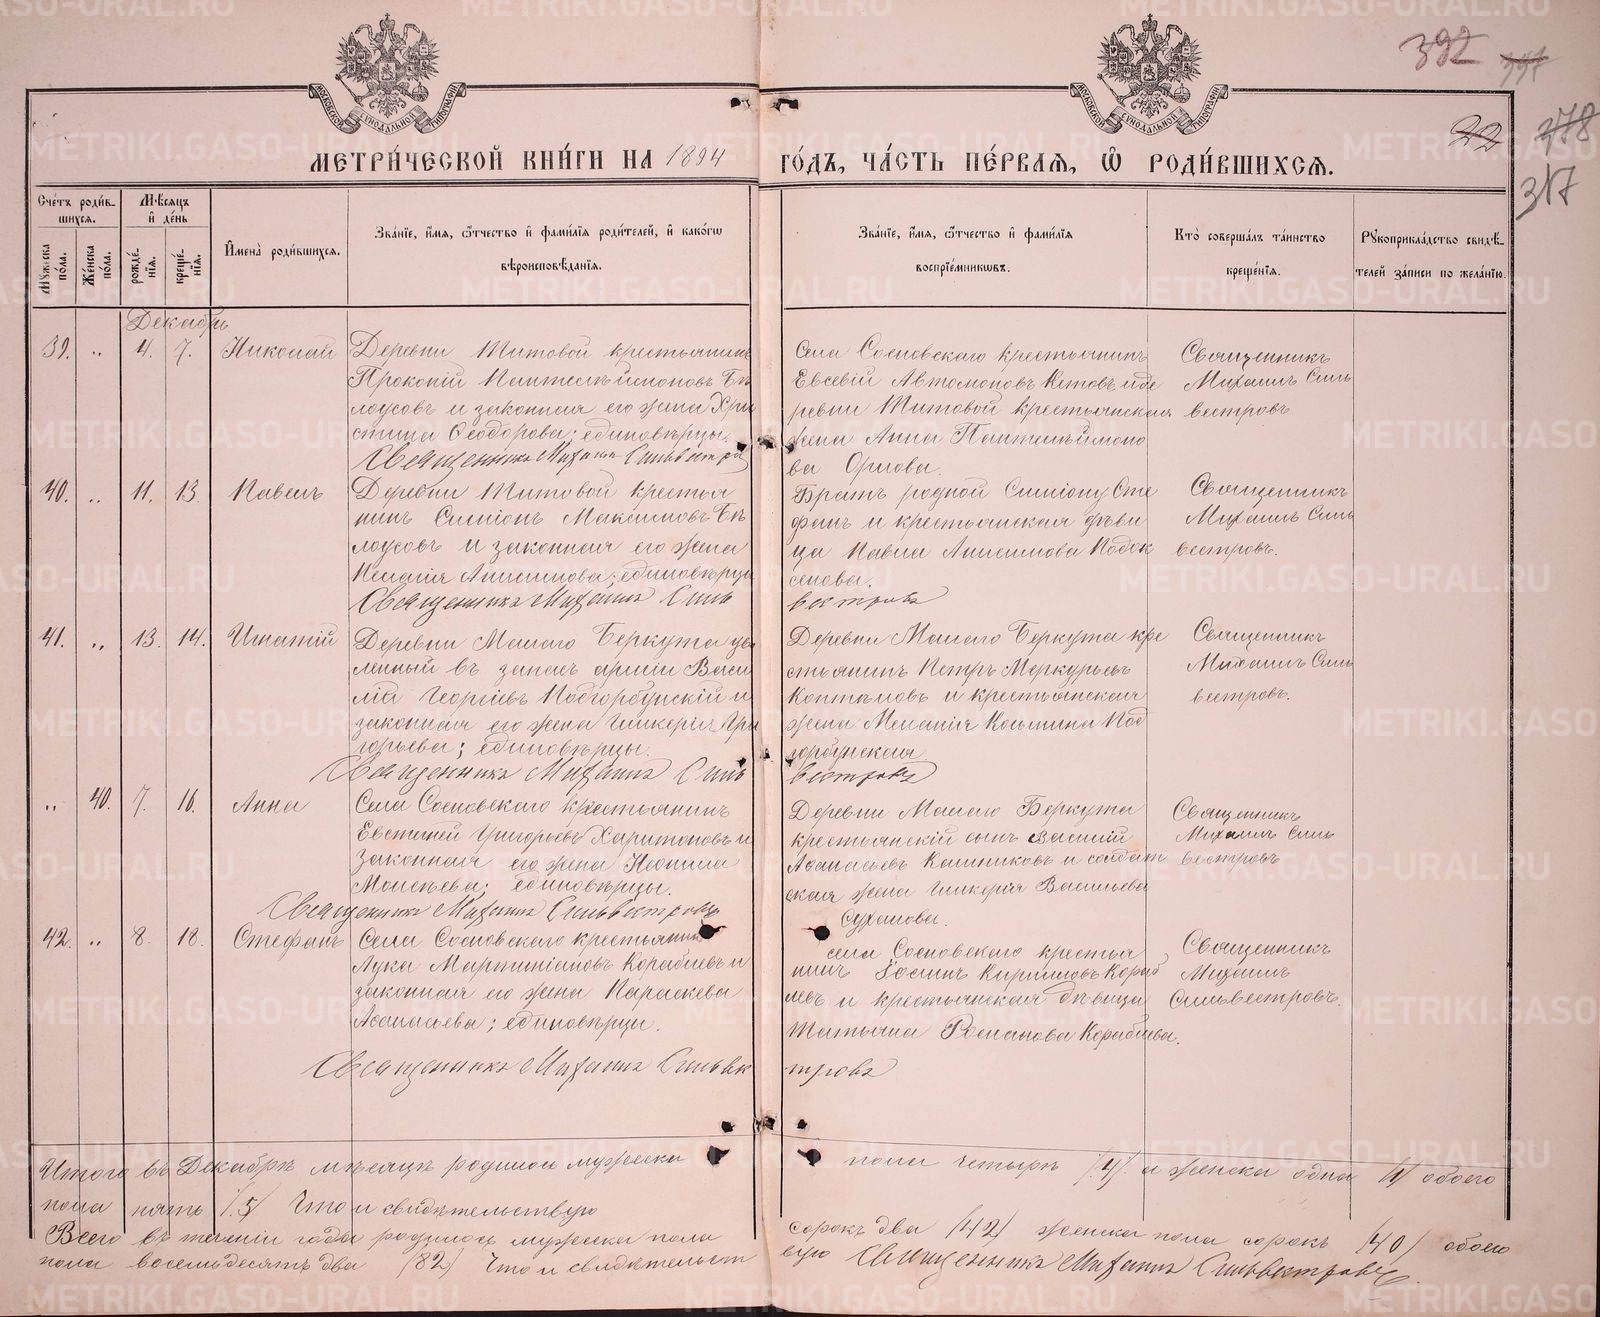 392 397
22 278
317
МЕТРИ́ЧЕСКОЙ КНИ́ГИ НА 1894 ГО́ДЪ, ЧА́СТЬ ПЕ́РВАѦ, Ѿ РОДИ́ВШИХСѦ.
Сче́тъ роди́вшихсѧ.
Мꙋ́жеска по́ла.
Же́нска по́ла.
Мѣ́сѧцъ и҆ де́нь
рожде́нїѧ.
креще́нїѧ.
И҆мена̀ роди́вшихсѧ.
Зва́нїе, и҆́мѧ, ѻ҆́тчество и҆ фами́лїѧ роди́телей, и҆ како́гѡ
вѣроисповѣ́данїѧ.
Зва́нїе, и҆́мѧ, ѻ҆́тчество и҆ фами́лїѧ
воспрїе́мникѡвъ.
Кто̀ соверша́лъ та́инство
креще́нїѧ.
Рꙋкоприкла́дство свидѣ́-
телей за́писи по жела́нїю.
Декабрь
39. „ 4. 7. Николай
Деревни Титовой крестьянинъ
Прокопій Пантелѣймоновъ Бѣ
лоусовъ и законная его жена Хри
стина Ѳеодорова; единовѣрцы.
Священникъ Михаилъ Сильвестровъ
Села Сосновскаго крестьянинъ
Евсевій Автомоновъ Кетовъ и де
ревни Титовой крестьянская
жена Анна Пантелѣймоно
ва Орлова.
Священникъ
Михаилъ Силь
вестровъ
40. „ 11. 13. Павелъ
Деревни Титовой крестья
нинъ Симіонъ Максимовъ Бѣ
лоусовъ и законная его жена
Пелагія Анисимова; единовѣрцы
Священникъ Михаилъ Силь
вестровъ
Братъ родной Симіону Сте
фанъ и крестьянская дѣви
ца Павла Анисимова Подок
сенова.
Священникъ
Михаилъ Силь
вестровъ.
41. „ 13. 14. Игнатій
Деревни Малаго Беркута уво
ленный въ запасъ арміи Васи
лій Георгіевъ Подгорбунскій и
законная его жена Гликерія Гри
горьева; единовѣрцы.
Священникъ Михаилъ Силь
вестровъ
Деревни Малаго Беркута кре
стьянинъ Петръ Меркурьевъ
Коптяловъ и крестьянская
жена Меланія Козьмина Под
горбунская
Священникъ
Михаилъ Силь
вестровъ.
„ 40. 7. 16. Анна
Села Сосновскаго крестьянинъ
Евстигней Григорьевъ Харитоновъ и
законная его жена Неонила
Моисѣева; единовѣрцы.
Священникъ Михаилъ Сильвестровъ
Деревни Малаго Беркута
крестьянскій сынъ Василій
Аѳанасьевъ Калиниковъ и солдат
ская жена Гликерія Васильева
Суханова.
Священникъ
Михаилъ Силь
вестровъ
42. „ 8. 18. Стефанъ
Села Сосновскаго крестьянинъ
Лука Мартиніановъ Кораблевъ и
законная его жена Параскева
Аѳанасьева; единовѣрцы.
Священникъ Михаилъ Сильвес
тровъ
села Сосновскаго крестья
нинъ Іосифъ Кириловъ Кораб
левъ и крестьянская дѣвица
Татьяна Романова Кораблева.
Священникъ
Михаилъ
Сильвестровъ.
Итого въ Декабрѣ мѣсяцѣ родилось мужеска пола четыре /4/ и женска одна /1/ обоего
пола пять /5/ Что и свидѣтельствую
Всего въ теченіи года родилось мужеска пола сорокъ два /42/ женска пола сорокъ /40/ обоего
пола восемьдесятъ два /82/ Что и свидѣтельст вую Священникъ Михаилъ Сильвестровъ.